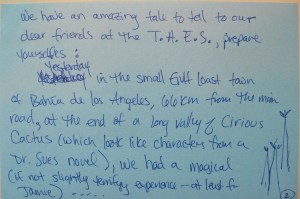 We have an amazing tale to tell to our
dear friends at the T.A.E.S., prepare
yourselfes:
Yesterday
in the small Gulf Coast town
of Bahia de los Angeles, 66km from the main
road, at the end of a long valley of Cirious
Cactus (which look like characters from a
Dr. Sues novel), we had a magical
(if not slightly terrifying experience - at least for
Jamie) .....
2